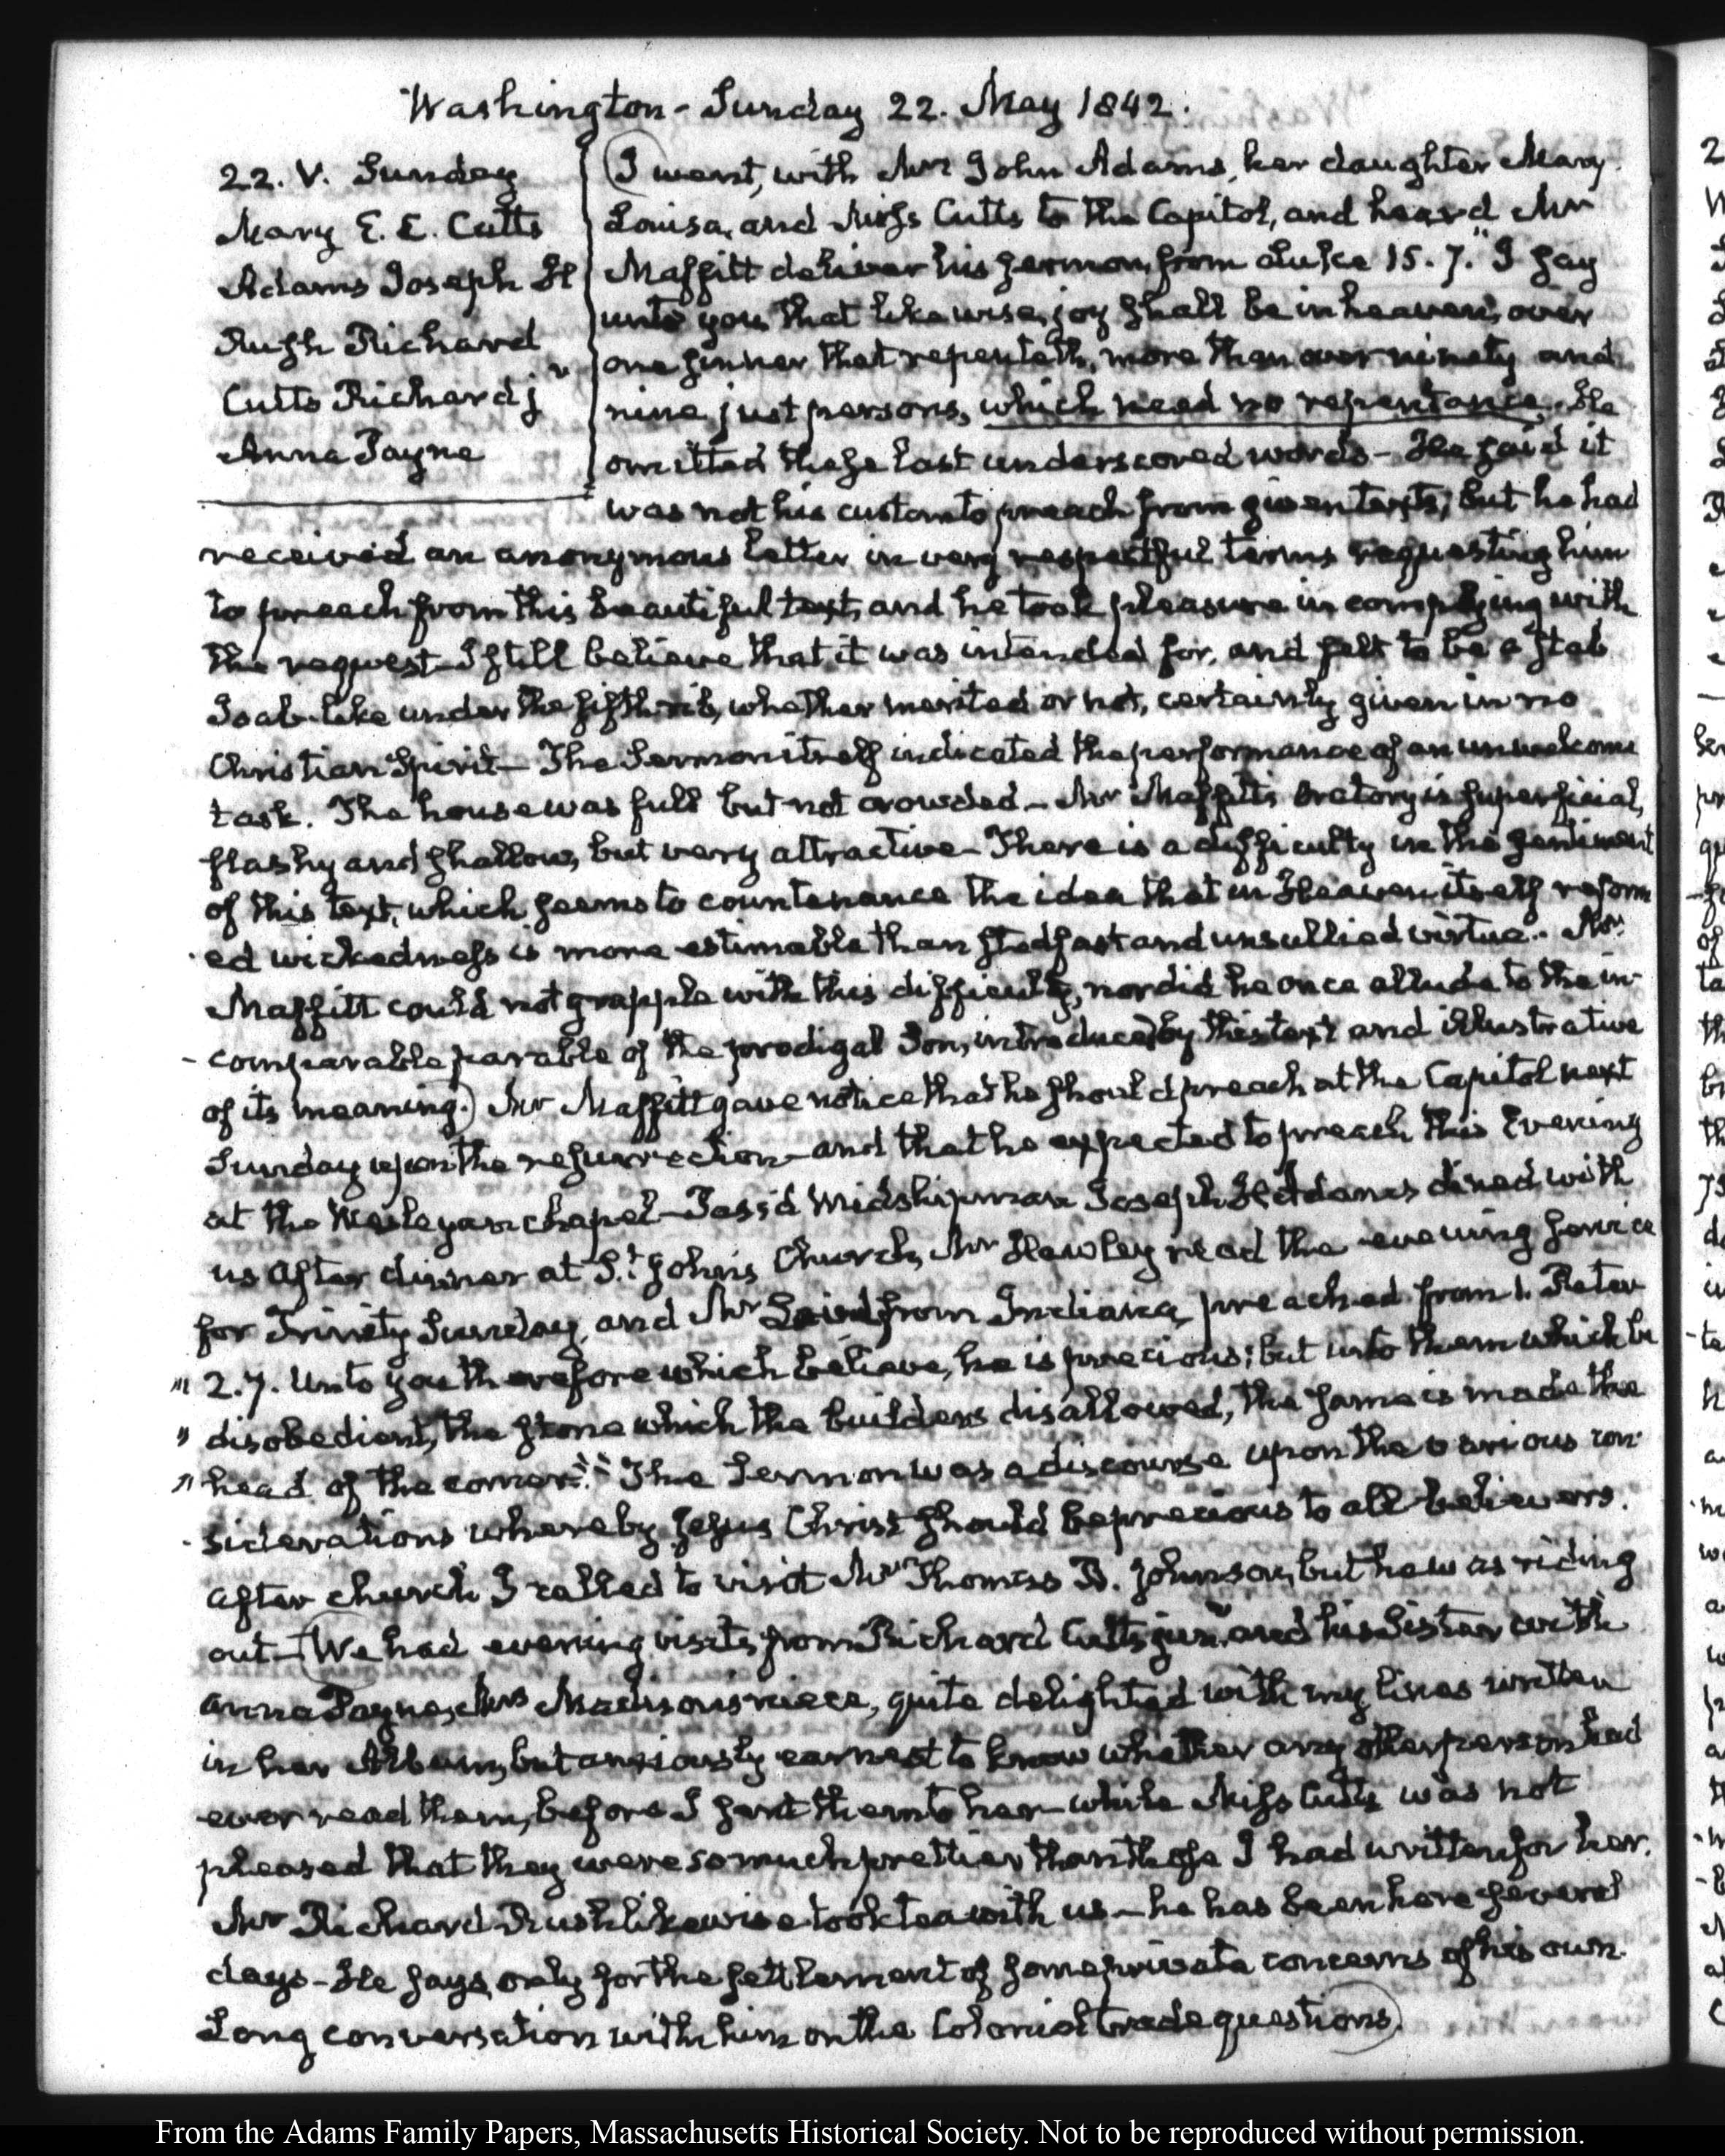 Washington - Sunday 22. May 1842.
22. V. Sunday
Mary E. E. Cutts
Adams Joseph H
Rush Richard
Cutts Richard jr
Anna Payne
I went, with Mrs John Adams, her daughter Mary
Louisa, and Miss Cutts to the Capitol, and heard Mr
Maffitt deliver his sermon, from Luke 15. 7. "I say
unto you that likewise, joy shall be in heaven, over
one sinner that repenteth, more than over ninety and
nine just persons, which need no repentance. He
omitted these last underscored words - He said it
was not his custom to preach from given texts; but he had
received an anonymous letter in very respectful terms requesting him
to preach from this beautiful text, and he took pleasure in complying with
the request - I still believe that it was intended for, and felt to be a stab
Joab-like under the fifth rib, whether merited or not, certainly given in no
Christian Spirit - The Sermon itself indicated the performance of an unwelcome
task. The house was full but not crowded - Mr Maffitt's Oratory is superficial,
flashy and shallow, but very attractive - There is a difficulty in the sentiment
of this text, which seems to countenance the idea that in Heaven itself reform
ed wickedness is more estimable than stedfast and unsullied virtue. Mr
Maffitt could not grapple with this difficulty, nor did he once allude to the in-
-comparable parable of the prodigal Son, introduced by this text and illustrative
of its meaning.) Mr Maffitt gave notice that he should preach at the Capitol next
Sunday upon the resurrection - and that he expected to preach this Evening
at the Wesleyan chapel - Pass'd Midshipman Joseph H Adams dined with
us After dinner at St. John's Church, Mr Hawley read the evening service
for Trinity Sunday, and Mr from Indiana, preached from 1. Peter
" 2. 7. Unto you therefore which believe, he is precious; but unto them which be
" disobedient, the stone which the builders disallowed, the same is made the
" head of the corner." The Sermon was a discourse upon the various con-
-siderations whereby Jesus Christ should be precious to all believers.
After church I called to visit Mr Thomas B. Johnson, but he was riding
out - (We had evening visits from Richard Cutts junr. and his Sister with
Anna Payne, Mrs Madison's niece, quite delighted with my lines written
in her Album, but anxiously earnest to know whether any other person had
ever read them, before I sent them to her - while Miss Cutts was not
pleased that they were so much prettier than those I had written for her.
Mr Richard Rush likewise took tea with us - he has been here several
days - He says, only for the settlement of some private concerns of his own.
Long conversation with him on the Colonial trade questions)
From the Adams Family Papers, Massachusetts Historical Society. Not to be reproduced without permission.